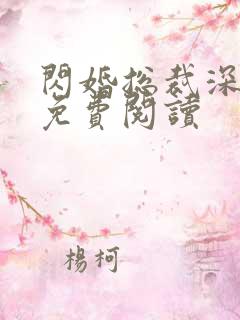 閃婚總裁深
免費閱讀
楊柯